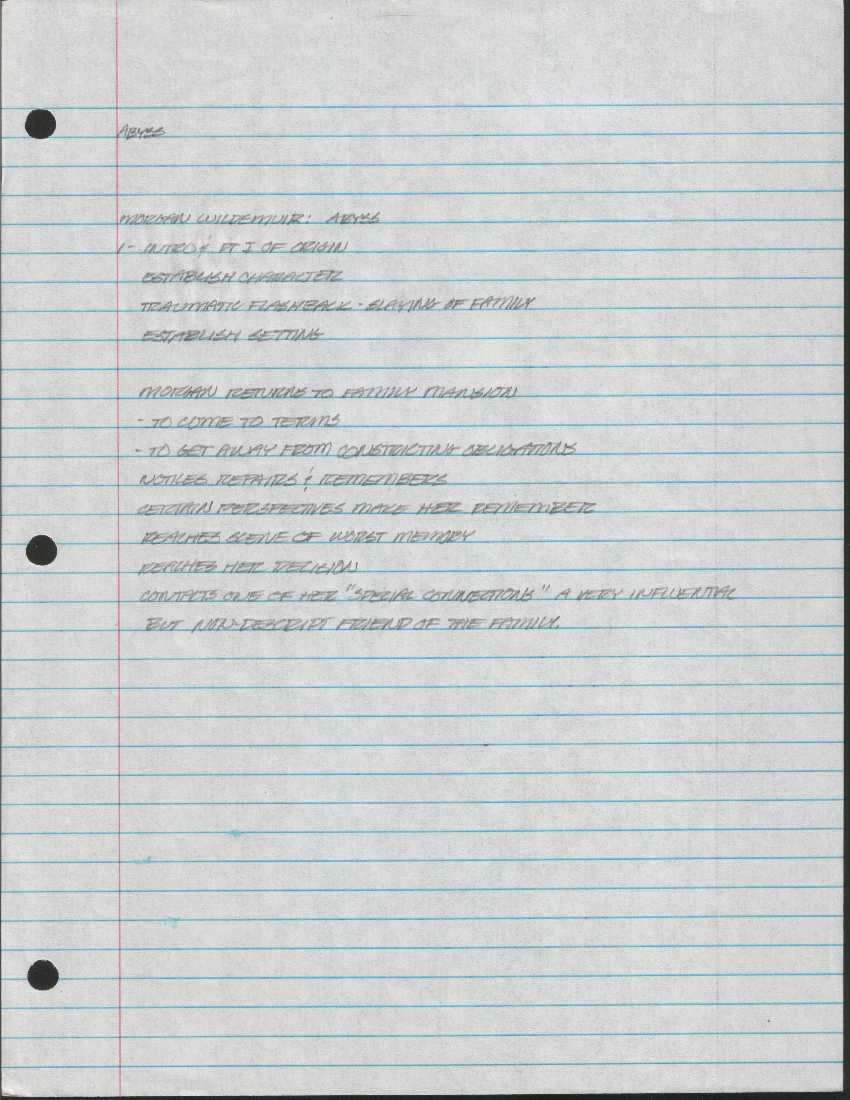 ABYSS
MORGAN WILDEMUIR: ABYSS
1- INTRO & PT I OF ORIGIN
ESTABLISH CHARACTER
TRAUMATIC FLASHBACK - SLAYING OF FAMILY
ESTABLISH SETTING
MORGAN RETURNS TO FAMILY MANSION
- TO COME TO TERMS
- TO GET AWAY FROM CONSTRICTING OBLIGATIONS
NOTICES REPAIRS & REMEMBERS
CERTAIN PERSPECTIVES MAKE HER REMEMBER
REACHES SCENE OF WORST MEMORY
REACHES HER DECISION
CONTACTS ONE OF HER "SPECIAL CONNECTIONS" A VERY INFLUENTIAL
BUT NON-DESCRIPT FRIEND OF THE FAMILY.